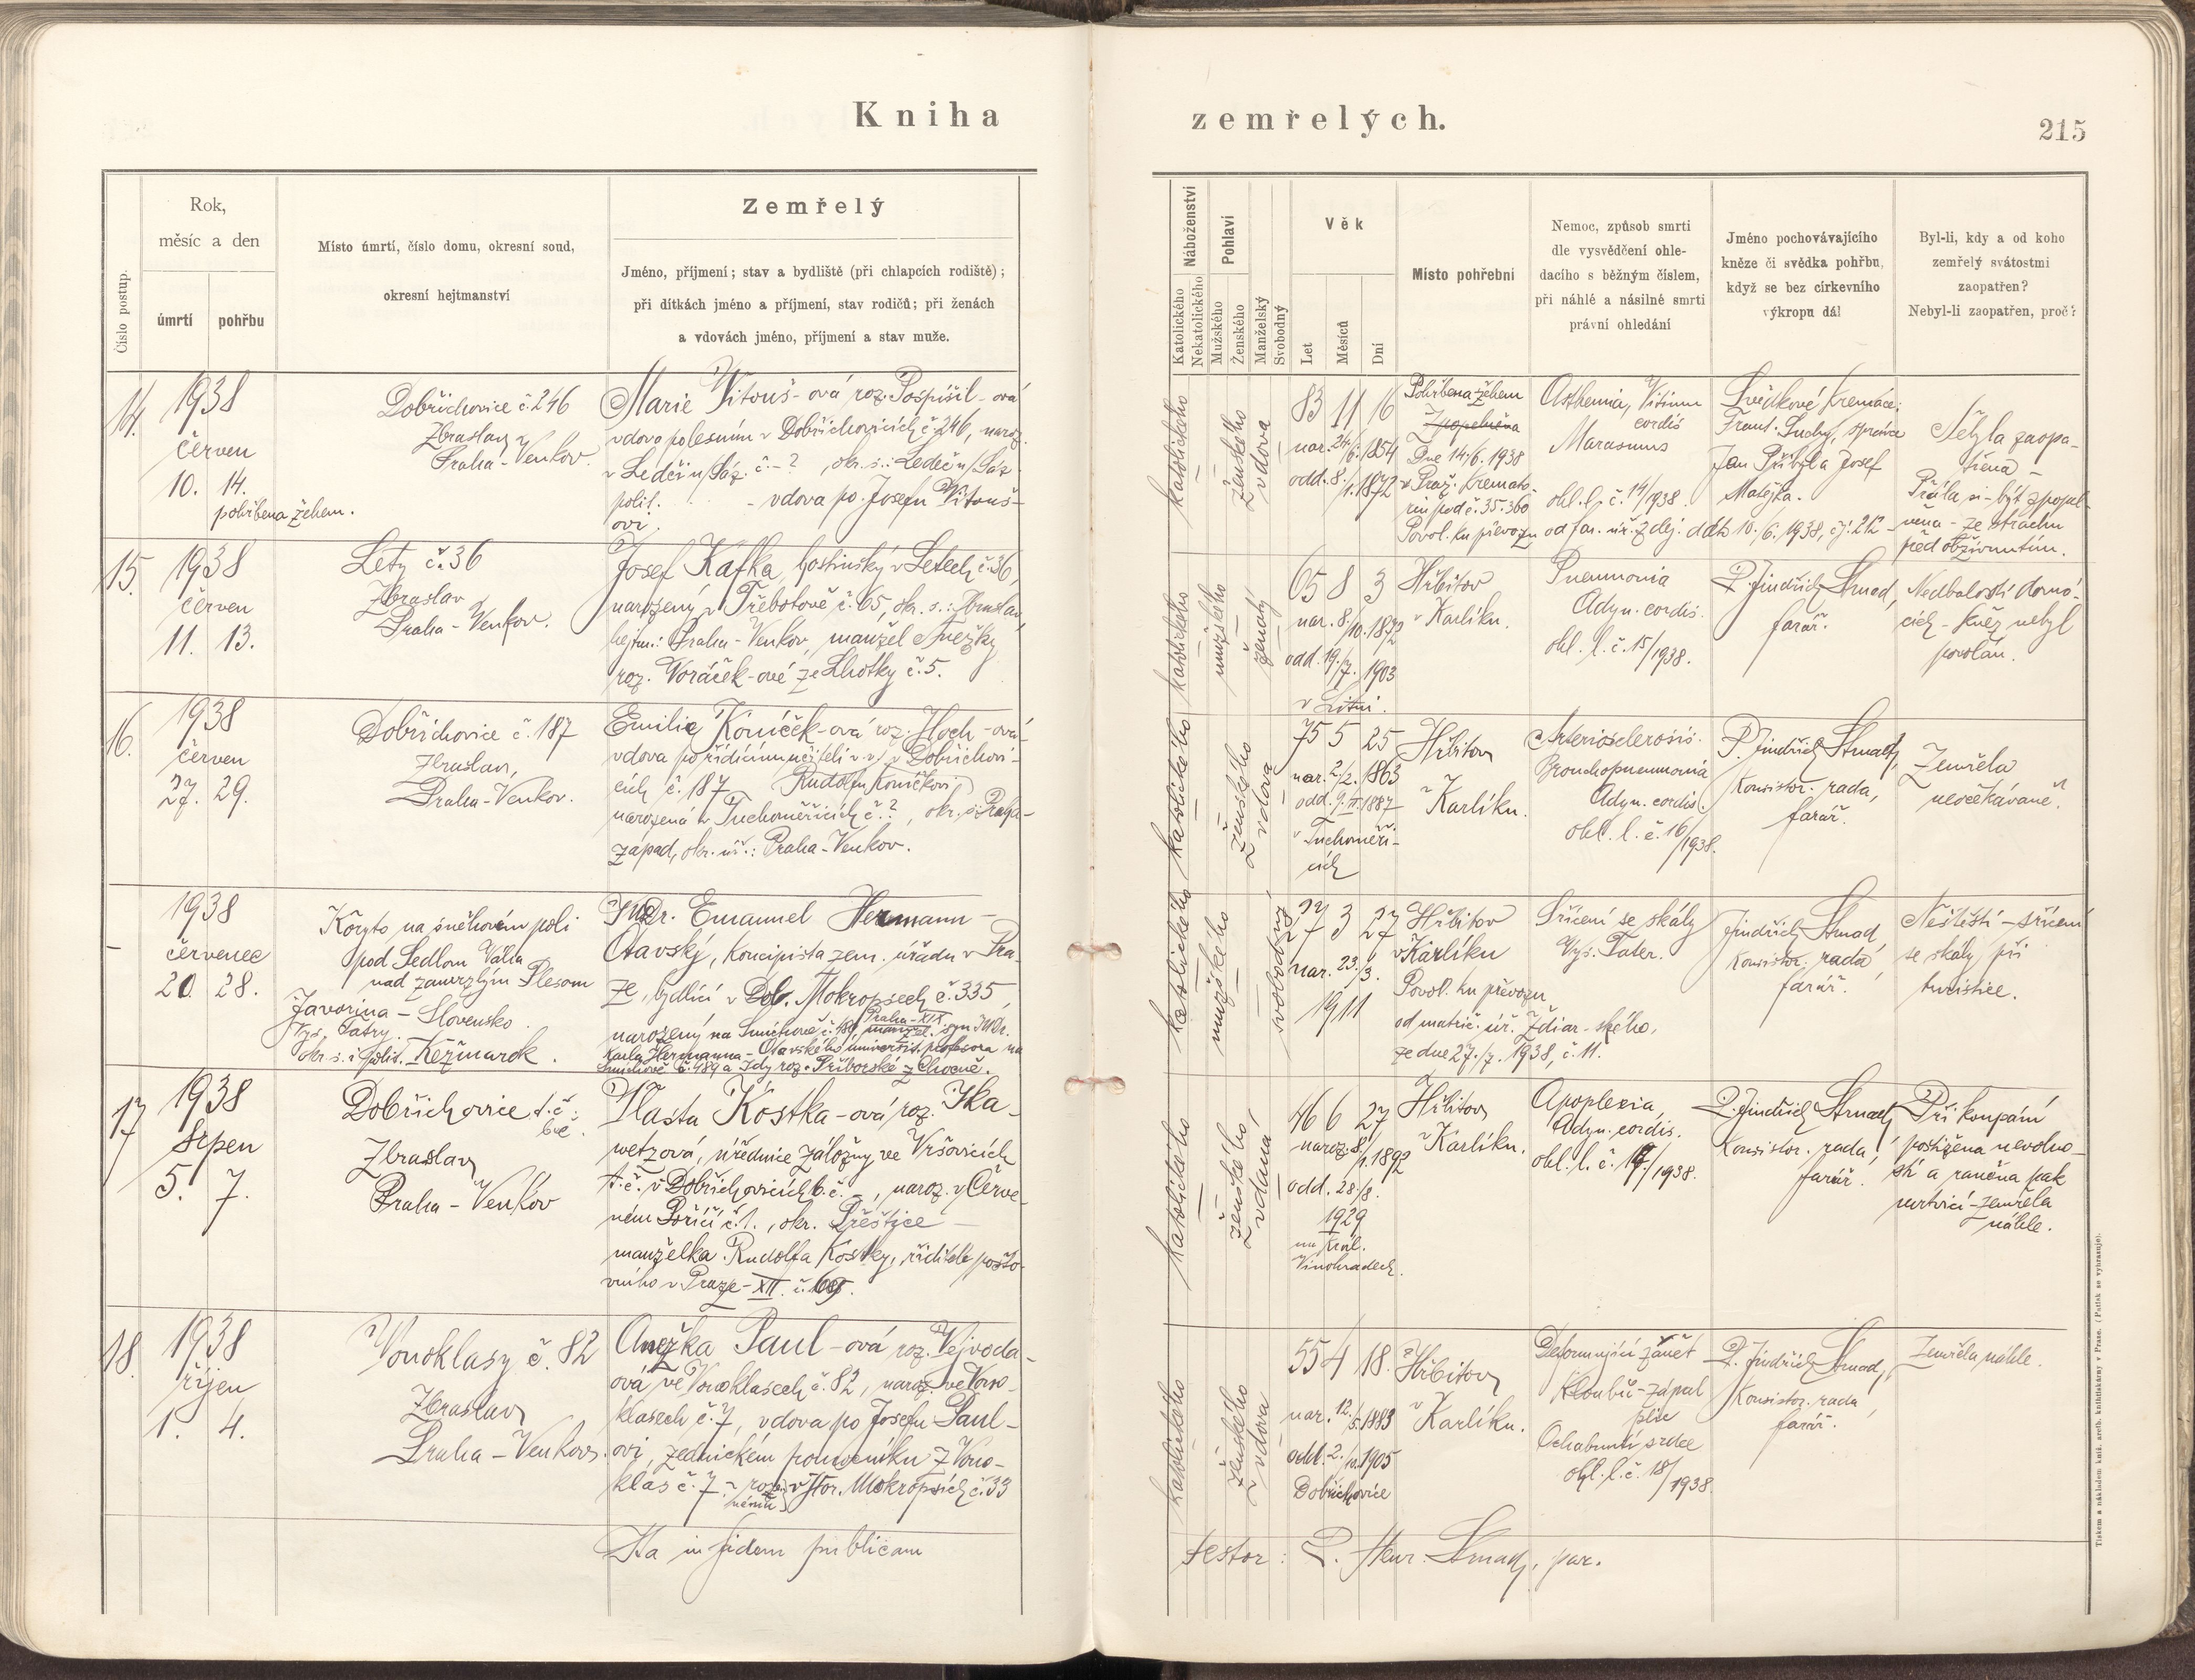 Kniha
zemřelých.
215
Číslo postup.
Rok,
měsíc a den
úmrtí
pohřbu
Místo úmrtí, číslo domu, okresní soud,
okresní hejtmanství
Zemřelý
Jméno, příjmení; stav a bydliště (při chlapcích rodiště);
při dítkách jméno a příjmení, stav rodičů; při ženách
a vdovách jméno, příjmení a stav muže.
Náboženství
Katolického
Nekatolického
Pohlaví
Mužského
Ženského
Manželský
Svobodný
Věk
Let
Měsíců
Dní
Místo pohřební
Nemoc, způsob smrti
dle vysvědčení ohle-
dacího s běžným číslem,
při náhlé a násilné smrti
právní ohledání
Jméno pochovávajícího
kněze či svědka pohřbu,
když se bez církevního
výkropu dál
Byl-li, kdy a od koho
zemřelý svátostmi
zaopatřen?
Nebyl-li zaopatřen, proč?
14.
1938
červen
10. 14.
pohřbena žehem.
Dobřichovice č. 246
Zbraslav
Praha-Venkov.
Marie Vitouš-ová roz. Pospíšil-ová
vdova po lesním v Dobřichovicích č. 246, naroz.
v Ledči n/Sáz. č. -? okr. s.: Ledeč n/Sáz.
polit. - vdova po Josefu Vitouš-
ovi.
katolického
ženského
vdova
83 11 16
nar. 24/6. 1854
odd. 8./1. 1872
Pohřbena žehem
Zpopelněna
Dne 14/6. 1938
v Praž. kremato-
riu pod č. 35.360
Povol. ku převozu od far. úř. zdej. ddto 10./6. 1938, čj. 212-
Asthenia, Vitium
cordis
Marasmus
ohl. l. č. 14/1938.
Svědkové kremace:
Frant. Suchý, správce
Jan Přibyl a Josef
Matějka.
Nebyla zaopa-
třena -
Přála si - být zpopel-
něna - ze strachu
před obživnutím.
15.
1938
červen
11. 13.
Lety č. 36
Zbraslav
Praha-Venkov.
Josef Kafka, hostinský v Letech č. 36,
narozený v Třebotově č. 65, okr. s.: Zbraslav,
hejtm.: Praha-Venkov, manžel Anežky
roz. Voráček-ové ze Lhotky č. 5.
katolického
mužského
ženatý
65 8 3
nar. 8./10. 1872
odd. 19./7. 1903
v Litni.
Hřbitov
v Karlíku.
Pneumonia
Adyn. cordis.
ohl. l. č. 15/1938.
P. Jindřich Strnad,
farář.
Nedbalostí domá-
cích - kněz nebyl
povolán.
16.
1938
červen
27. 29.
Dobřichovice č. 187
Zbraslav,
Praha-Venkov.
Emilie Koníček-ová roz. Hoch-ová
vdova po řídícím učiteli v. v. v Dobřichovi-
cích č. 187 Rudolfu Koníčkovi
narozená v Tuchoměřicích č. ?, okr. s. Praha-
západ, okr. úř.: Praha-Venkov.
katolického
ženského
vdova
75 5 25
nar. 2/2. 1863
odd. 9. II 1887
v Tuchoměři-
cích
Hřbitov
v Karlíku.
Arteriosclerosis.
Bronchopneumonia
Adyn. cordis.
ohl. l. č. 16/1938.
P. Jindřich Strnad,
Konsistor. rada,
farář.
Zemřela
neočekávaně.
-
1938
červenec
20 28.
Koryto na sněhovém poli
pod Sedlom Váha
nad zamrzlým Plesom
Javorina - Slovensko.
Vys. Tatry
okr. s. i polit. Kežmarok.
JUDr. Emanuel Hermann-
Otavský, koncipista zem. úřadu v Pra-
ze, bydlící v Dol. Mokropsech č. 335,
narozený na Smíchově č. 489, Praha-XIX manžel. syn JUDr.
Karla Hermanna-Otavského univerzit. profesora na
Smíchově č. 489 a Idy roz. Příborské z Chocně.
katolického
mužského
svobodný
27 3 27
nar. 23./3.
1911
Hřbitov
v Karlíku
Povol. ku převozu
od matrič. úř. Ždiar-ského,
ze dne 27./7. 1938, č. 11.
Sřícení se skály
Vys. Tater.
Jindřich Strnad
Konsistor. rada,
farář.
Neštěstí - sřícení
se skály při
turistice.
17
1938
srpen
5. 7.
Dobřichovice t. č.
b. č.
Zbraslav
Praha-Venkov
Vlasta Kostka-ová roz. Ska-
wetzová, úřednice záložny ve Vršovicích
t. č. v Dobřichovicích b. č. -, naroz. v Červe-
ném Poříčí č. 1., okr. Přeštice -
manželka Rudolfa Kostky, ředitele pošto-
vního v Praze-XII. č.
katolického
ženského
vdaná
46 6 27
naroz. 8/1. 1892
odd. 28/8.
1929
na Král.
Vinohradech.
Hřbitov
v Karlíku.
Apoplexia,
Adyn. cordis.
ohl. l. č. 17/1938.
P. Jindřich Strnad,
Konsistor. rada,
farář.
Při koupání
postižena nevolno-
stí a raněna pak
mrtvicí - zemřela
náhle.
18.
1938
říjen
1. 4.
Vonoklasy č. 82
Zbraslav
Praha-Venkov.
Anežka Paul-ová roz. Vejvoda-
ová ve Vonoklasech č. 82, naroz. ve Vono-
klasech č. 7, vdova po Josefu Paul-
ovi, zednickém pomocníku z Vono-
klas č. 7 - v Hor. Mokropsích č. 33
katolického
ženského
vdova
55 4 18.
nar. 12./5. 1883
odd. 2./10. 1905
Dobřichovice
Hřbitov
v Karlíku.
Deformující zánět
kloubů - zápal
plic
Ochabnutí srdce
ohl. l. č. 18/1938.
P. Jindřich Strnad,
Konsistor. rada,
farář.
Zemřela náhle.
Ita in fidem publicam
testor: P. Henr. Strnad, par.
Tiskem a nákladem kníž. arcib. knihtiskárny v Praze. (Patisk se vyhrazuje).